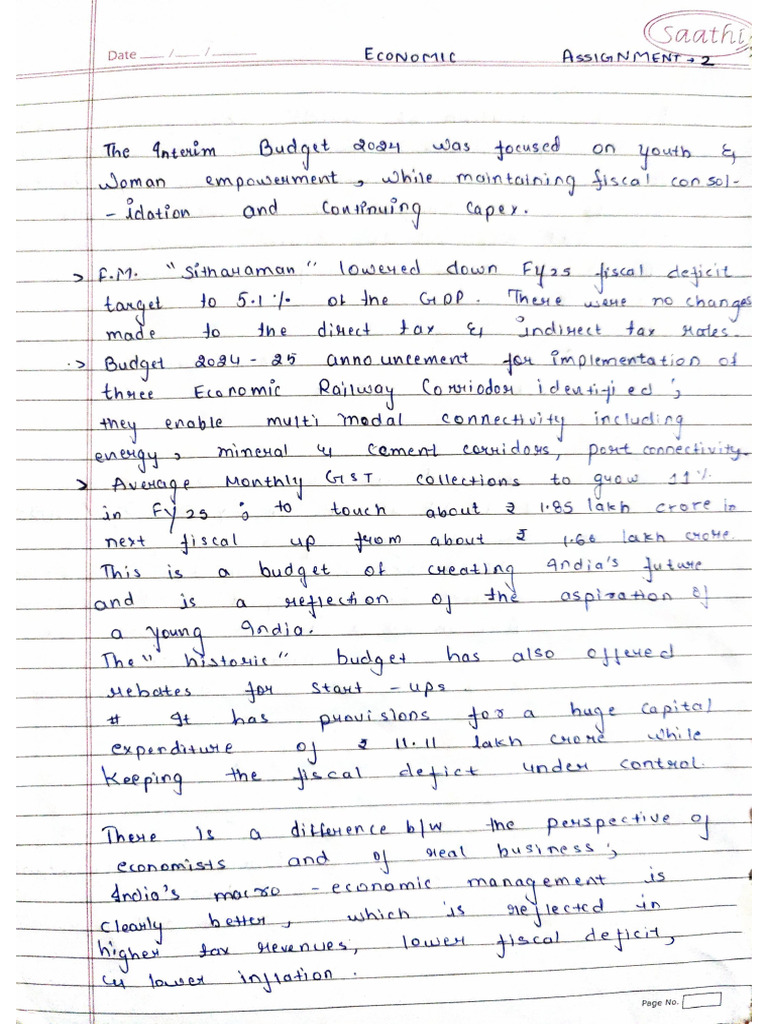 Saathi
Date ___/___/_____
ECONOMIC ASSIGNMENT → 2
The Interim Budget 2024 was focused on youth &
Woman empowerment, while maintaining fiscal consol-
- idation and continuing capex.
> F.M. "Sitharaman" lowered down FY25 fiscal deficit
target to 5.1% of the GDP. There were no changes
made to the direct tax & indirect tax rates.
> Budget 2024-25 announcement for implementation of
three Economic Railway Corriodor identified;
they enable multi modal connectivity including
energy, mineral & cement corridors, port connectivity.
> Average Monthly GST collections to grow 11%
in FY25; to touch about ₹ 1.85 lakh crore in
next fiscal up from about ₹ 1.66 lakh crore.
This is a budget of creating India's future
and is a reflection of the aspiration of
a young India.
The "historic" budget has also offered
rebates for start-ups.
# It has provisions for a huge capital
expenditure of ₹ 11.11 lakh crore while
keeping the fiscal defict under control.
There is a difference b/w the perspective of
economists and of real business;
India's macro-economic management is
clearly better, which is reflected in
higher tax revenues, lower fiscal deficit,
& lower inflation.
Page No.